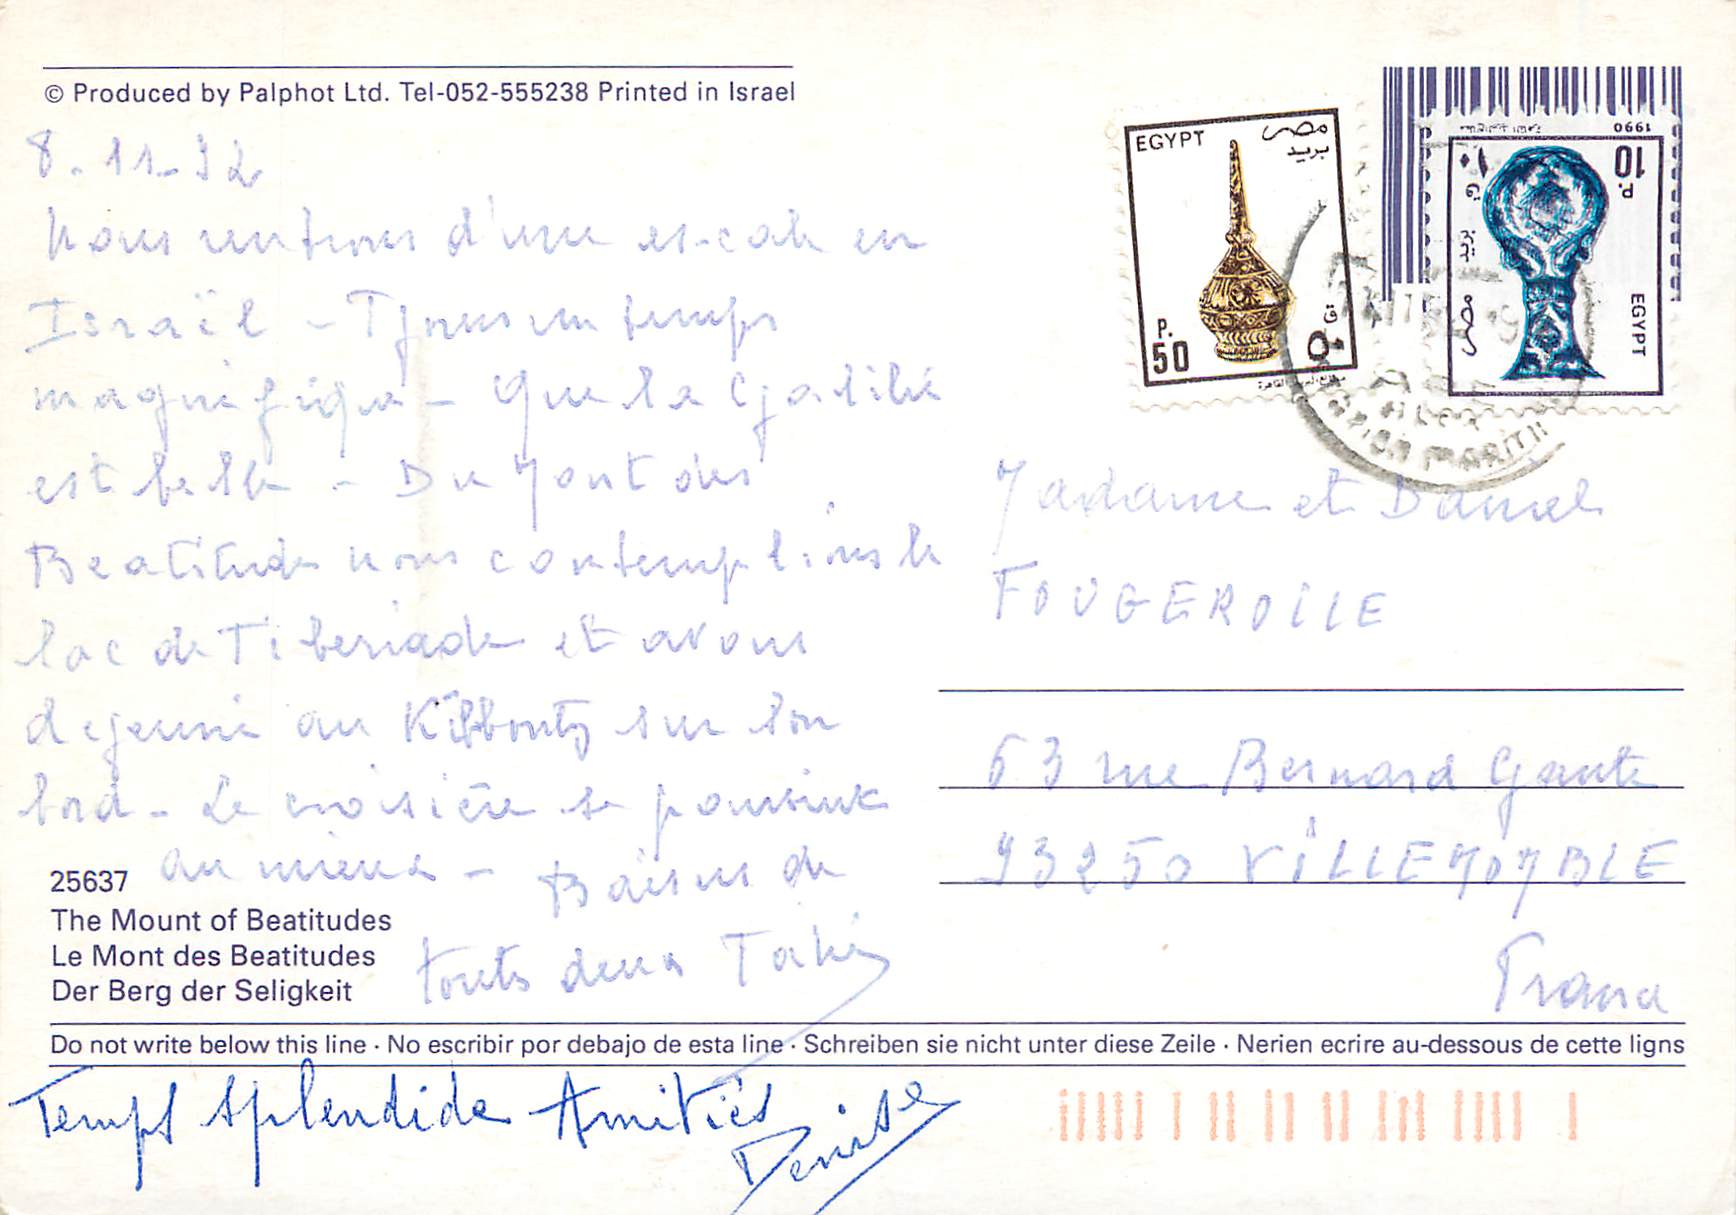 © Produced by Palphot Ltd. Tel-052-555238 Printed in Israel
8.11.92
Nous rentrons d'une escale en
Israël - Tjours un temps
magnifique - Que la Galilée
est belle - Du Mont des
Beatitudes nous contemplions le
lac de Tiberiade et avons
dejeuné au Kibboutz sur son
bord - La croisière se poursuit
au mieux - Baisers de
touts deux
25637
The Mount of Beatitudes
Le Mont des Beatitudes
Der Berg der Seligkeit
Do not write below this line · No escribir por debajo de esta line · Schreiben sie nicht unter diese Zeile · Nerien ecrire au-dessous de cette ligns
Temps splendide Amitiés
Denise
EGYPT
مصر
بريد
P.
50
ق
٥٠
1990
10
P.
١٠
ق
بريد
مصر
EGYPT
MARITI
Madame et Daniel
FOUGEROLLE
63 rue Bernard Gante
93250 VILLEMOMBLE
France